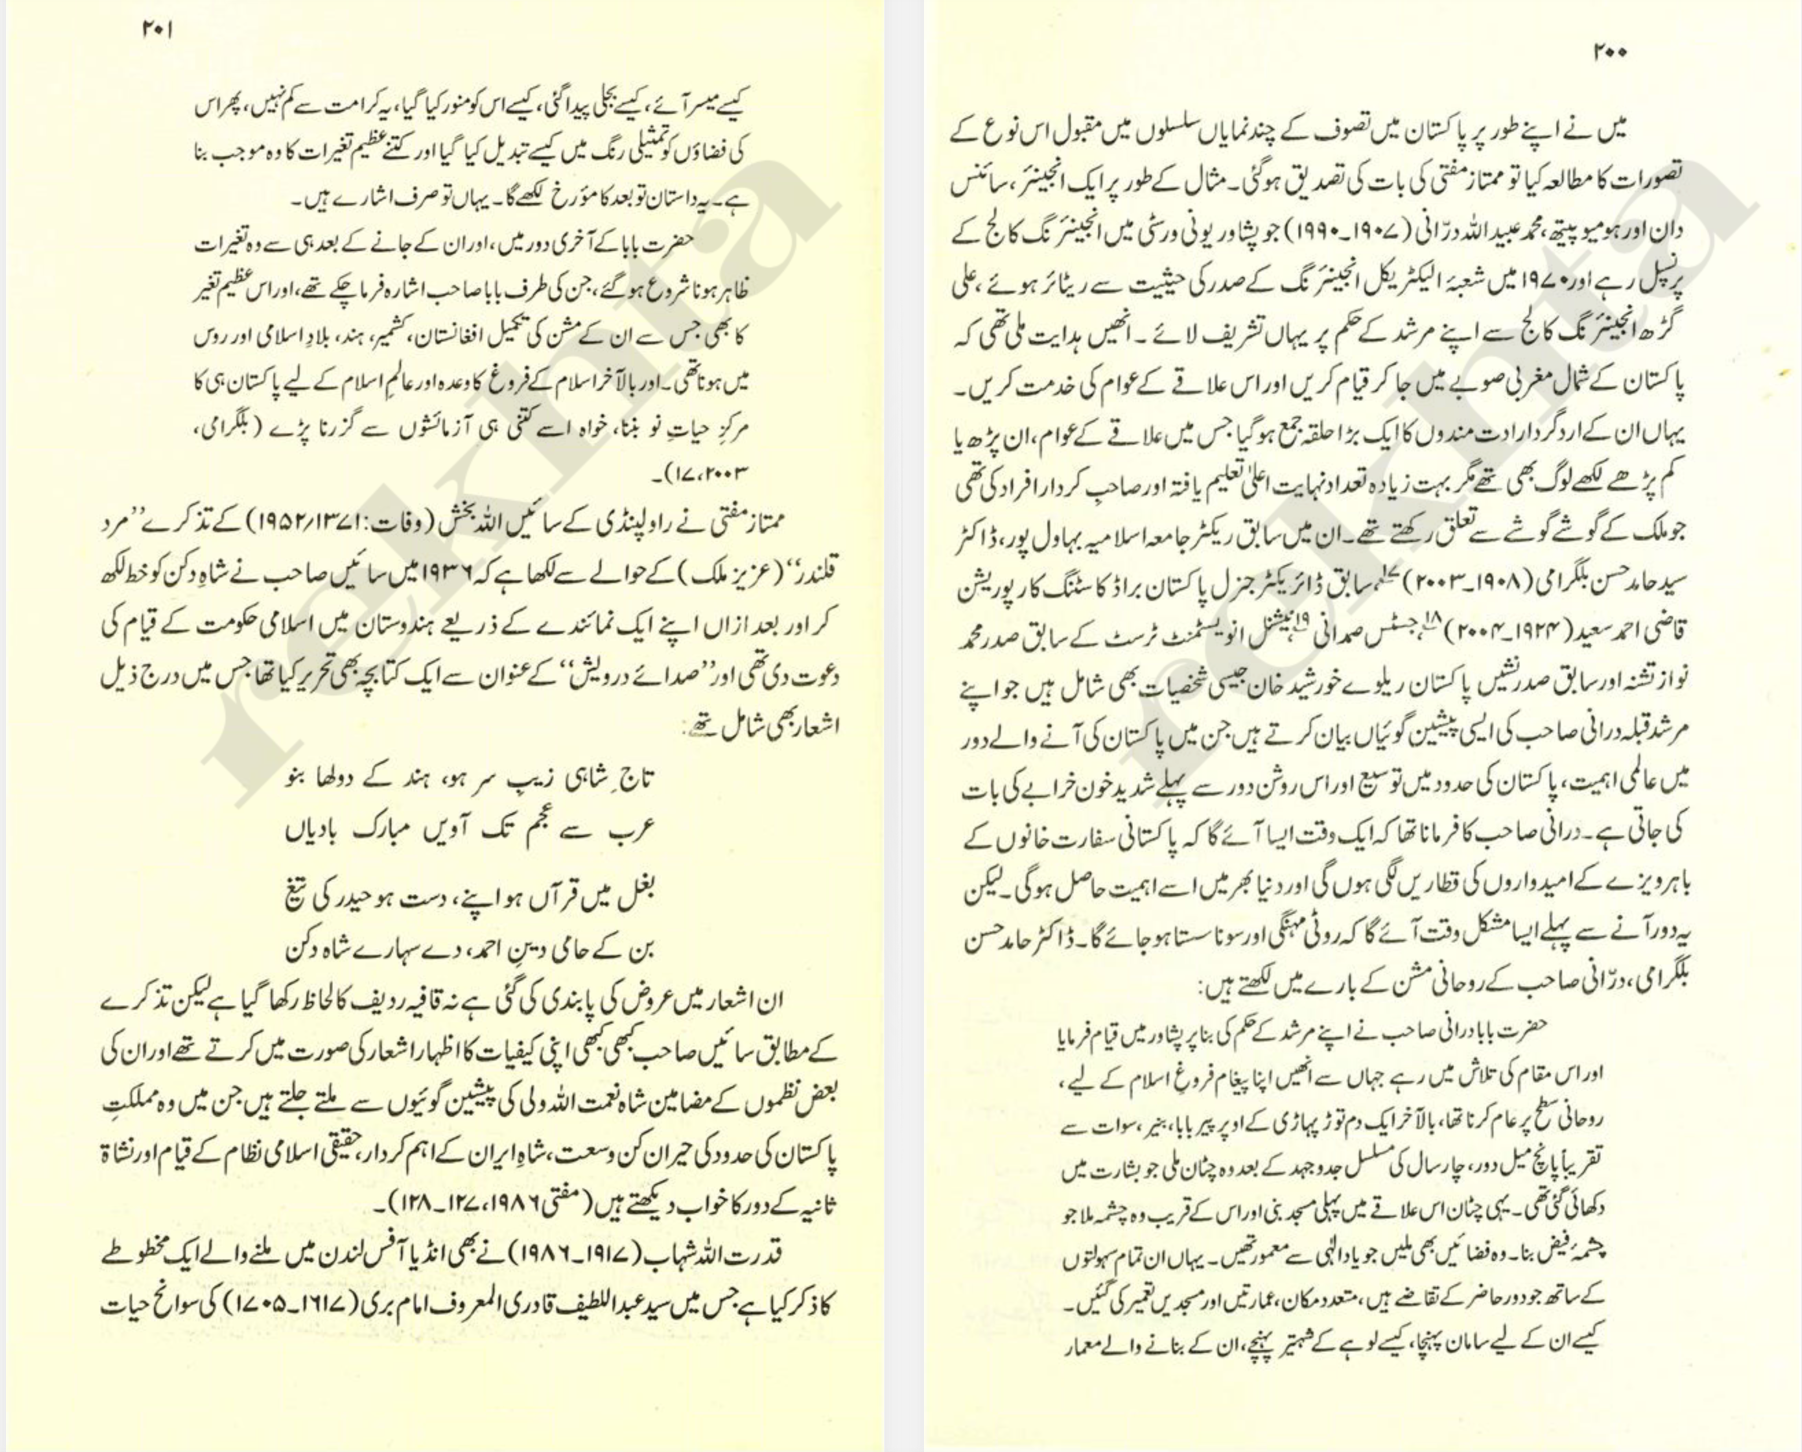 ۲۰۰
میں نے اپنے طور پر پاکستان میں تصوف کے چند نمایاں سلسلوں میں مقبول اس نوع کے
تصورات کا مطالعہ کیا تو ممتاز مفتی کی بات کی تصدیق ہو گئی۔ مثال کے طور پر ایک انجینئر، سائنس
دان اور ہومیو پیتھ، محمد عبید اللہ درّانی (۱۹۰۷۔۱۹۹۰) جو پشاور یونی ورسٹی میں انجینئرنگ کالج کے
پرنسپل رہے اور ۱۹۷۰ میں شعبۂ الیکٹریکل انجینئرنگ کے صدر کی حیثیت سے ریٹائر ہوئے، علی
گڑھ انجینئرنگ کالج سے اپنے مرشد کے حکم پر یہاں تشریف لائے۔ انھیں ہدایت ملی تھی کہ
پاکستان کے شمال مغربی صوبے میں جا کر قیام کریں اور اس علاقے کے عوام کی خدمت کریں۔
یہاں ان کے ارد گرد ارادت مندوں کا ایک بڑا حلقہ جمع ہو گیا جس میں علاقے کے عوام، ان پڑھ یا
کم پڑھے لکھے لوگ بھی تھے مگر بہت زیادہ تعداد نہایت اعلیٰ تعلیم یافتہ اور صاحبِ کردار افراد کی تھی
جو ملک کے گوشے گوشے سے تعلق رکھتے تھے۔ ان میں سابق ریکٹر جامعہ اسلامیہ بہاول پور، ڈاکٹر
سید حامد حسن بلگرامی (۱۹۰۸۔۲۰۰۳)۱۷، سابق ڈائریکٹر جنرل پاکستان براڈ کاسٹنگ کارپوریشن
قاضی احمد سعید (۱۹۲۴۔۲۰۰۴)۱۸، جسٹس صمدانی۱۹، نیشنل انویسٹمنٹ ٹرسٹ کے سابق صدر محمد
نواز تشنہ اور سابق صدر نشیں پاکستان ریلوے خورشید خان جیسی شخصیات بھی شامل ہیں جو اپنے
مرشد قبلہ درانی صاحب کی ایسی پیشین گوئیاں بیان کرتے ہیں جن میں پاکستان کی آنے والے دور
میں عالمی اہمیت، پاکستان کی حدود میں توسیع اور اس روشن دور سے پہلے شدید خون خرابے کی بات
کی جاتی ہے۔ درانی صاحب کا فرمانا تھا کہ ایک وقت ایسا آئے گا کہ پاکستانی سفارت خانوں کے
باہر ویزے کے امیدواروں کی قطاریں لگی ہوں گی اور دنیا بھر میں اسے اہمیت حاصل ہوگی۔ لیکن
یہ دور آنے سے پہلے ایسا مشکل وقت آئے گا کہ روٹی مہنگی اور سونا سستا ہو جائے گا۔ ڈاکٹر حامد حسن
بلگرامی، درّانی صاحب کے روحانی مشن کے بارے میں لکھتے ہیں:
حضرت بابا درانی صاحب نے اپنے مرشد کے حکم کی بنا پر پشاور میں قیام فرمایا
اور اس مقام کی تلاش میں رہے جہاں سے انھیں اپنا پیغام فروغِ اسلام کے لیے،
روحانی سطح پر عام کرنا تھا، بالآخر ایک دم توڑ پہاڑی کے اوپر پیر بابا، بنیر، سوات سے
تقریباً پانچ میل دور، چار سال کی مسلسل جدوجہد کے بعد وہ چٹان ملی جو بشارت میں
دکھائی گئی تھی۔ یہی چٹان اس علاقے میں پہلی مسجد بنی اور اس کے قریب وہ چشمہ ملا جو
چشمۂ فیض بنا۔ وہ فضائیں بھی ملیں جو یادِ الٰہی سے معمور تھیں۔ یہاں ان تمام سہولتوں
کے ساتھ جو دورِ حاضر کے تقاضے ہیں، متعدد مکان، عمارتیں اور مسجدیں تعمیر کی گئیں۔
کیسے ان کے لیے سامان پہنچا، کیسے لوہے کے شہتیر پہنچے، ان کے بنانے والے معمار
۲۰۱
کیسے میسر آئے، کیسے بجلی پیدا گئی، کیسے اس کو منور کیا گیا، یہ کرامت سے کم نہیں، پھر اس
کی فضاؤں کو تمثیلی رنگ میں کیسے تبدیل کیا گیا اور کتنے عظیم تغیرات کا وہ موجب بنا
ہے۔ یہ داستان تو بعد کا مؤرخ لکھے گا۔ یہاں تو صرف اشارے ہیں۔
حضرت بابا کے آخری دور میں، اور ان کے جانے کے بعد ہی سے وہ تغیرات
ظاہر ہونا شروع ہو گئے، جن کی طرف بابا صاحب اشارہ فرما چکے تھے، اور اس عظیم تغیر
کا بھی جس سے ان کے مشن کی تکمیل افغانستان، کشمیر، ہند، بلادِ اسلامی اور روس
میں ہونا تھی۔ اور بالآخر اسلام کے فروغ کا وعدہ اور عالمِ اسلام کے لیے پاکستان ہی کا
مرکزِ حیاتِ نو بننا، خواہ اسے کتنی ہی آزمائشوں سے گزرنا پڑے (بلگرامی،
۲۰۰۳، ۱۷)۔
ممتاز مفتی نے راولپنڈی کے سائیں اللہ بخش (وفات: ۱۳۷۱/۱۹۵۲) کے تذکرے ”مرد
قلندر“ (عزیز ملک) کے حوالے سے لکھا ہے کہ ۱۹۳۶ میں سائیں صاحب نے شاہِ دکن کو خط لکھ
کر اور بعد ازاں اپنے ایک نمائندے کے ذریعے ہندوستان میں اسلامی حکومت کے قیام کی
دعوت دی تھی اور ”صدائے درویش“ کے عنوان سے ایک کتابچہ بھی تحریر کیا تھا جس میں درج ذیل
اشعار بھی شامل تھے:
تاجِ شاہی زیبِ سر ہو، ہند کے دولھا بنو
عرب سے عجم تک آویں مبارک بادیاں
بغل میں قرآں ہو اپنے، دست ہو حیدر کی تیغ
بن کے حامی دینِ احمد، دے سہارے شاہ دکن
ان اشعار میں عروض کی پابندی کی گئی ہے نہ قافیہ ردیف کا لحاظ رکھا گیا ہے لیکن تذکرے
کے مطابق سائیں صاحب کبھی کبھی اپنی کیفیات کا اظہار اشعار کی صورت میں کرتے تھے اور ان کی
بعض نظموں کے مضامین شاہ نعمت اللہ ولی کی پیشین گوئیوں سے ملتے جلتے ہیں جن میں وہ مملکتِ
پاکستان کی حدود کی حیران کن وسعت، شاہِ ایران کے اہم کردار، حقیقی اسلامی نظام کے قیام اور نشاۃ
ثانیہ کے دور کا خواب دیکھتے ہیں (مفتی ۱۹۸۶، ۱۲۷۔۱۲۸)۔
قدرت اللہ شہاب (۱۹۱۷۔۱۹۸۶) نے بھی انڈیا آفس لندن میں ملنے والے ایک مخطوطے
کا ذکر کیا ہے جس میں سید عبد اللطیف قادری المعروف امام بری (۱۶۱۷۔۱۷۰۵) کی سوانح حیات
rekhta
rekhta